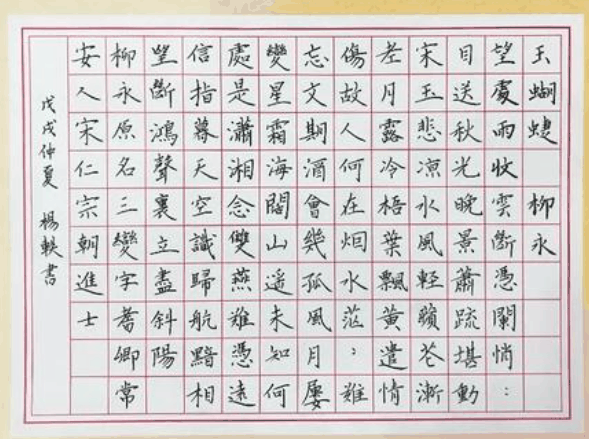 玉蝴蝶 柳永
望處雨收雲斷憑闌悄：
目送秋光晚景蕭疏堪動
宋玉悲涼水風輕蘋花漸
老月露冷梧葉飄黃遣情
傷故人何在烟水茫：難
忘文期酒會幾孤風月屢
變星霜海闊山遙未知何
處是瀟湘念雙燕難憑遠
信指暮天空識歸航黯相
望斷鴻聲裏立盡斜陽
柳永原名三變字耆卿常
安人宋仁宗朝進士
戊戌仲夏 楊軼書